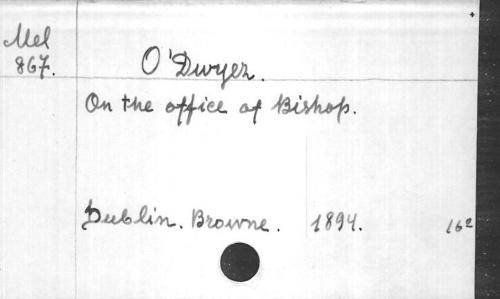 Mel
867.
O'Dwyer.
On the office of Bishop.
Dublin. Browne. 1894. 16º